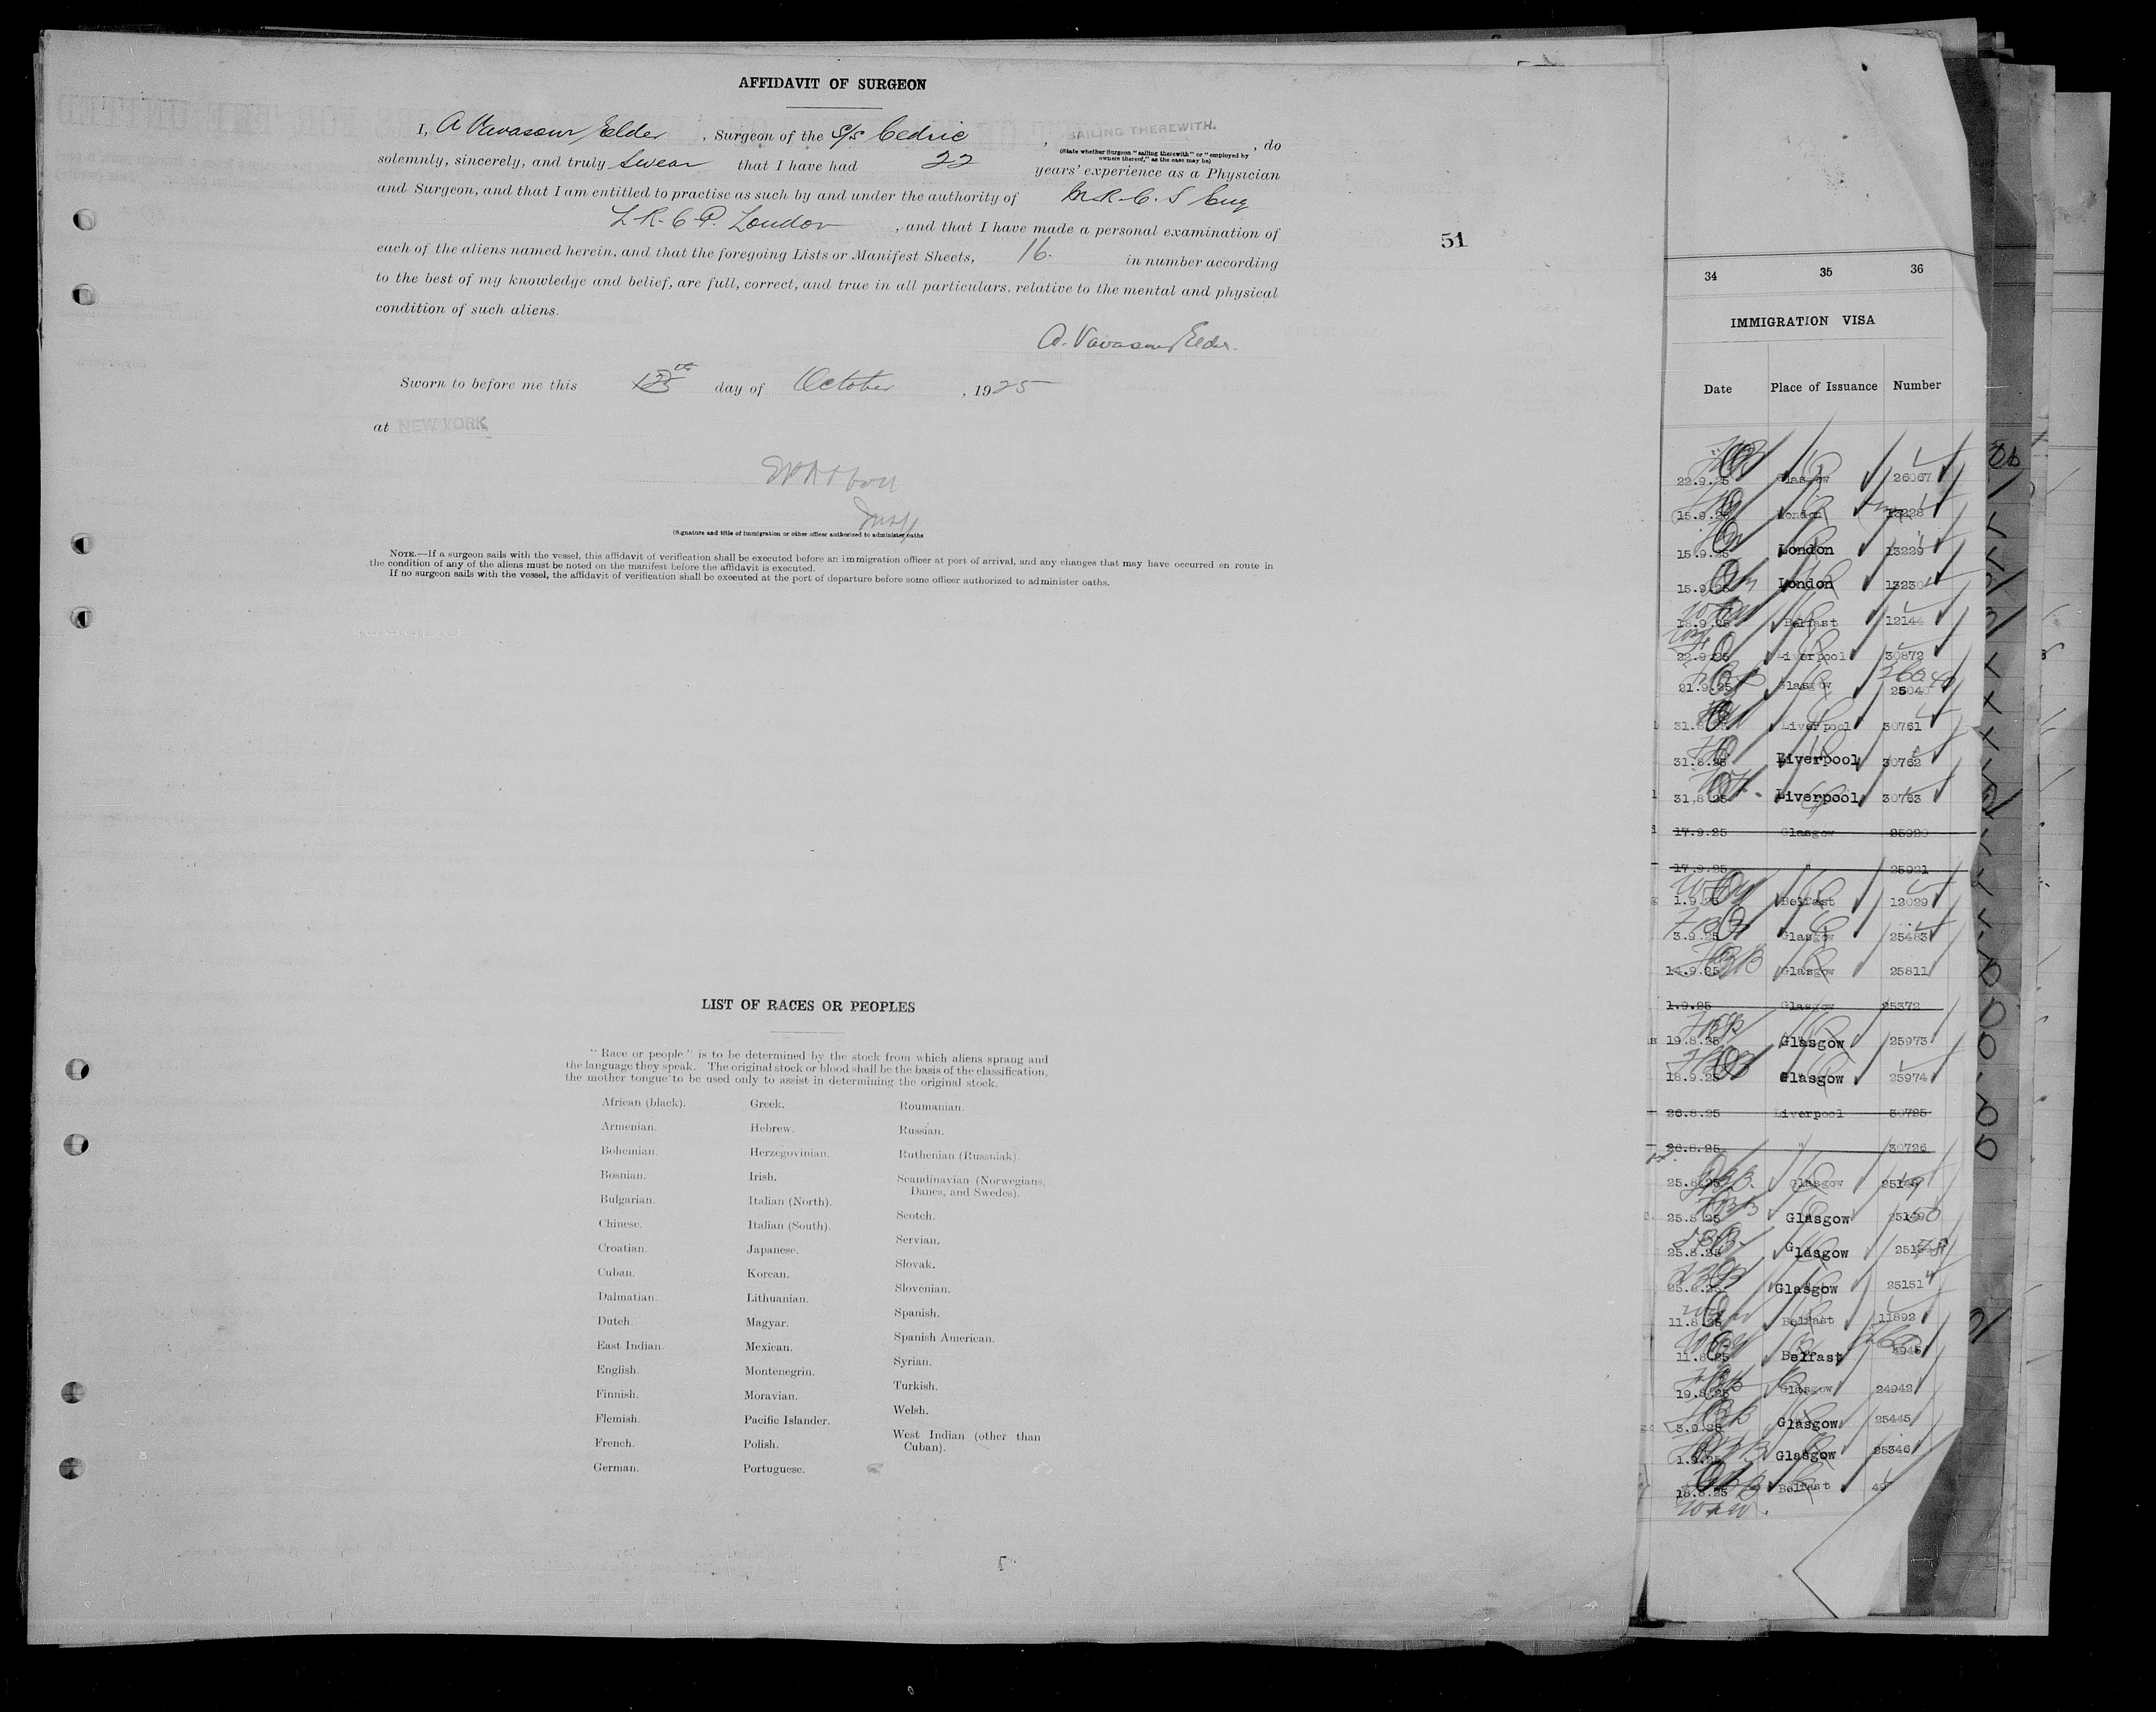 AFFIDAVIT OF SURGEON
I, A Vavasour Elder, Surgeon of the S/S Cedric, SAILING THEREWITH. , do
(State whether Surgeon "sailing therewith" or "employed by
owners thereof," as the case may be)
solemnly, sincerely, and truly swear that I have had 22 years' experience as a Physician
and Surgeon, and that I am entitled to practise as such by and under the authority of M.R.C.S Eng
L.R.C.P. London , and that I have made a personal examination of
each of the aliens named herein, and that the foregoing Lists or Manifest Sheets, 16. in number according
to the best of my knowledge and belief, are full, correct, and true in all particulars, relative to the mental and physical
condition of such aliens.
A. Vavasour Elder.
Sworn to before me this day of October , 1925
at NEW YORK
(Signature and title of immigration or other officer authorized to administer oaths
NOTE.—If a surgeon sails with the vessel, this affidavit of verification shall be executed before an immigration officer at port of arrival, and any changes that may have occurred en route in
the condition of any of the aliens must be noted on the manifest before the affidavit is executed.
If no surgeon sails with the vessel, the affidavit of verification shall be executed at the port of departure before some officer authorized to administer oaths.
51
LIST OF RACES OR PEOPLES
"Race or people" is to be determined by the stock from which aliens sprang and
the language they speak. The original stock or blood shall be the basis of the classification,
the mother tongue to be used only to assist in determining the original stock.
African (black).
Armenian.
Bohemian.
Bosnian.
Bulgarian.
Chinese.
Croatian.
Cuban.
Dalmatian.
Dutch.
East Indian.
English.
Finnish.
Flemish.
French.
German.
Greek.
Hebrew.
Herzegovinian.
Irish.
Italian (North).
Italian (South).
Japanese.
Korean.
Lithuanian.
Magyar.
Mexican.
Montenegrin.
Moravian.
Pacific Islander.
Polish.
Portuguese.
Roumanian.
Russian.
Ruthenian (Russniak).
Scandinavian (Norwegians,
Danes, and Swedes).
Scotch.
Servian.
Slovak.
Slovenian.
Spanish.
Spanish American.
Syrian.
Turkish.
Welsh.
West Indian (other than
Cuban).
34 35 36
IMMIGRATION VISA
Date Place of Issuance Number
22.9.25 Glasgow 26067
15.9.25 London 13228
15.9.25 London 13229
15.9.25 London 13230
18.9.25 Belfast 12144
22.9.25 Liverpool 30872
21.9.25 Glasgow
31.8.25 Liverpool 30761
31.8.25 Liverpool 30762
31.8.25 Liverpool 30763
17.9.25 Glasgow 25920
17.9.25 " 25921
1.9.25 Belfast 12029
3.9.25 Glasgow 25483
14.9.25 Glasgow 25811
1.9.25 Glasgow 25372
19.8.25 Glasgow 25973
18.9.25 Glasgow 25974
26.8.25 Liverpool 30725
26.8.25 " 30726
25.8.25 Glasgow
25.8.25 Glasgow
25.8.25 Glasgow
25.8.25 Glasgow 25151
11.8.25 Belfast 11892
11.8.25 Belfast
19.8.25 Glasgow 24942
3.9.25 Glasgow 25445
1.9.25 Glasgow 25346
18.8.25 Belfast